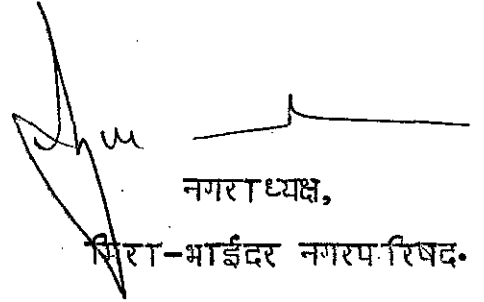 नगराध्यक्ष,
मिरा-भाईंदर नगरपरिषद.